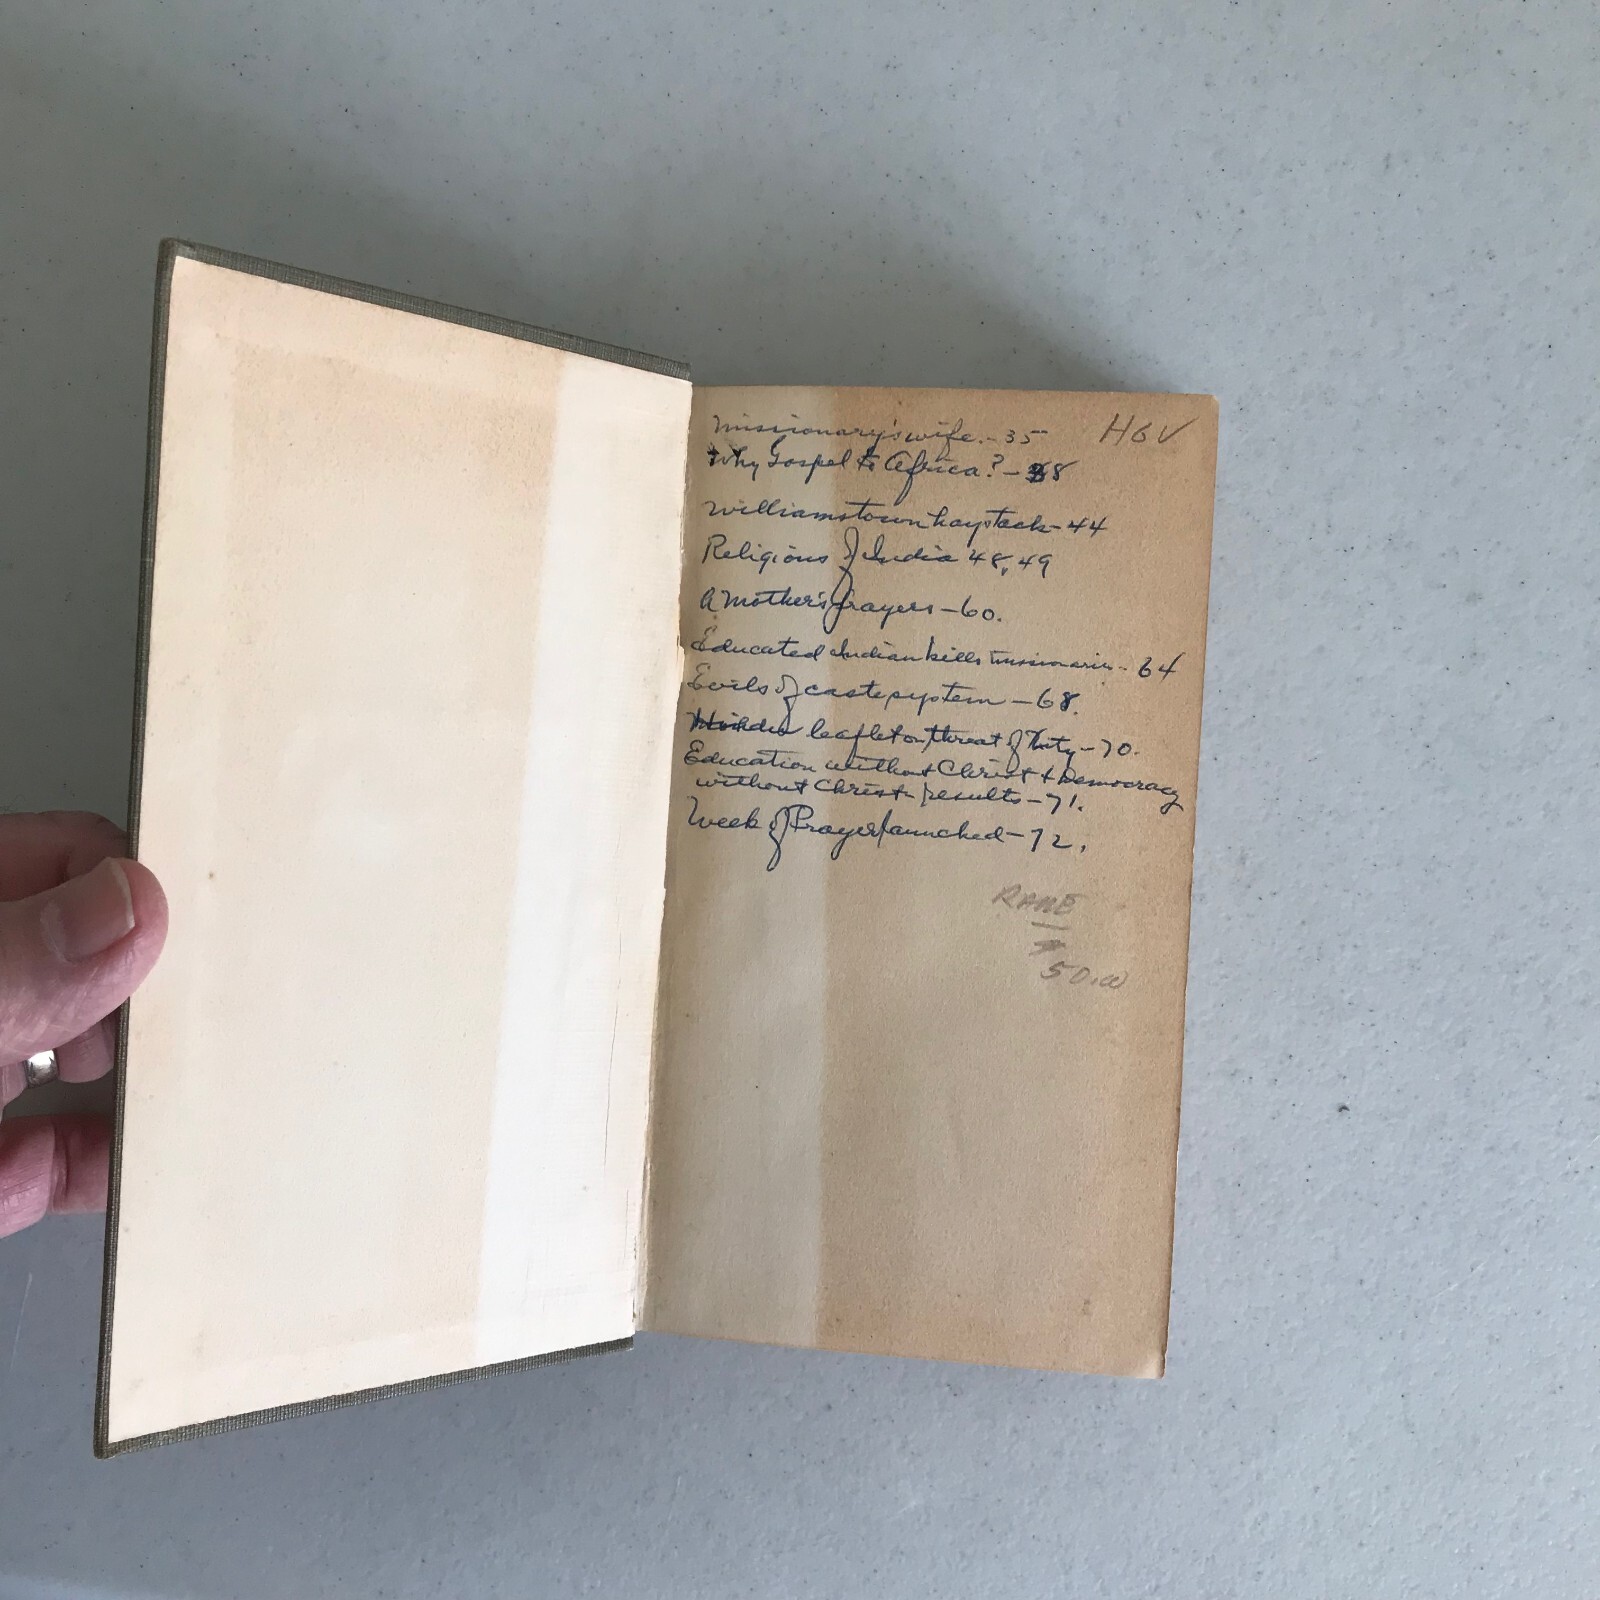 Missionary's wife. - 35 HGV
Why Gospel to Africa? - 38
Williamstown haystack - 44
Religions of India 48, 49
A Mother's prayers - 60.
Educated Indian kills missionaries - 64
Evils of caste system - 68.
Hindu leaflet on threat of Xnty - 70.
Education without Christ & Democracy
without Christ - results - 71.
Week of Prayer launched - 72.
RARE
50.00